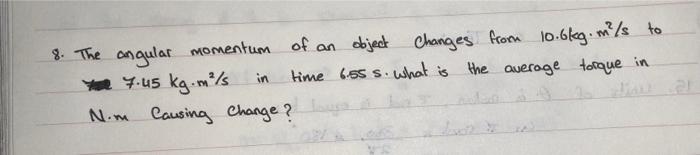 8. The angular momentum of an object changes from 10.6kg.m²/s to
7.45 kg.m²/s in time 6.55 s. what is the average torque in
N.m Causing Change?